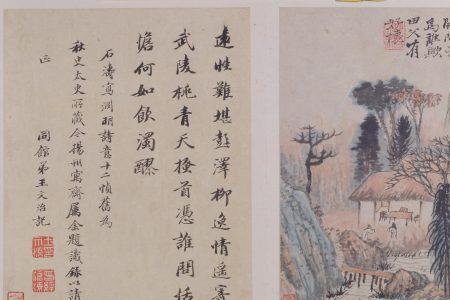 遠性難堪彭澤柳逸情遥寄
武陵桃青天搔首憑誰問恬
憺何如飲濁醪
石濤寫淵明詩意十二幀舊為
秋史太史所藏今揚州寓齋屬余題識錄以請
正
同館弟王文治記
為誰歟
田父有